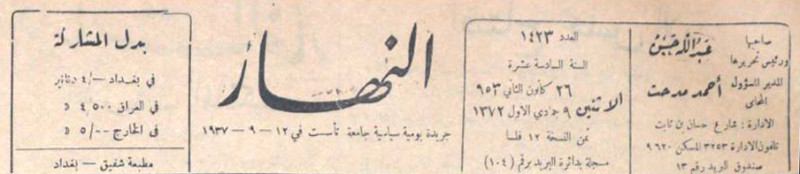 صاحبها
ورئيس تحريرها
عبدالله حسن
المدير المسؤول
المحامي
أحمد مدحت
الادارة : شارع حسان بن ثابت
تلفون الادارة ٣٢٥٣ المسكن ٩٦٢٠
صندوق البريد رقم ١٣
العدد ١٤٢٣
السنة السادسة عشرة
الاثنين
٢٦ كانون الثاني ٩٥٣
٩ جمادي الاول ١٣٧٢
ثمن النسخة ١٢ فلسا
مسجلة بدائرة البريد برقم (١٠٤)
النهار
جريدة يومية سياسية جامعة تأسست في ١٢ – ٩ – ١٩٣٧
بدل المشاركة
في بغداد –/٤ دنانير
في العراق ٤/٥٠٠ »
في الخارج ٥/٠٠ »
مطبعة شفيق – بغداد